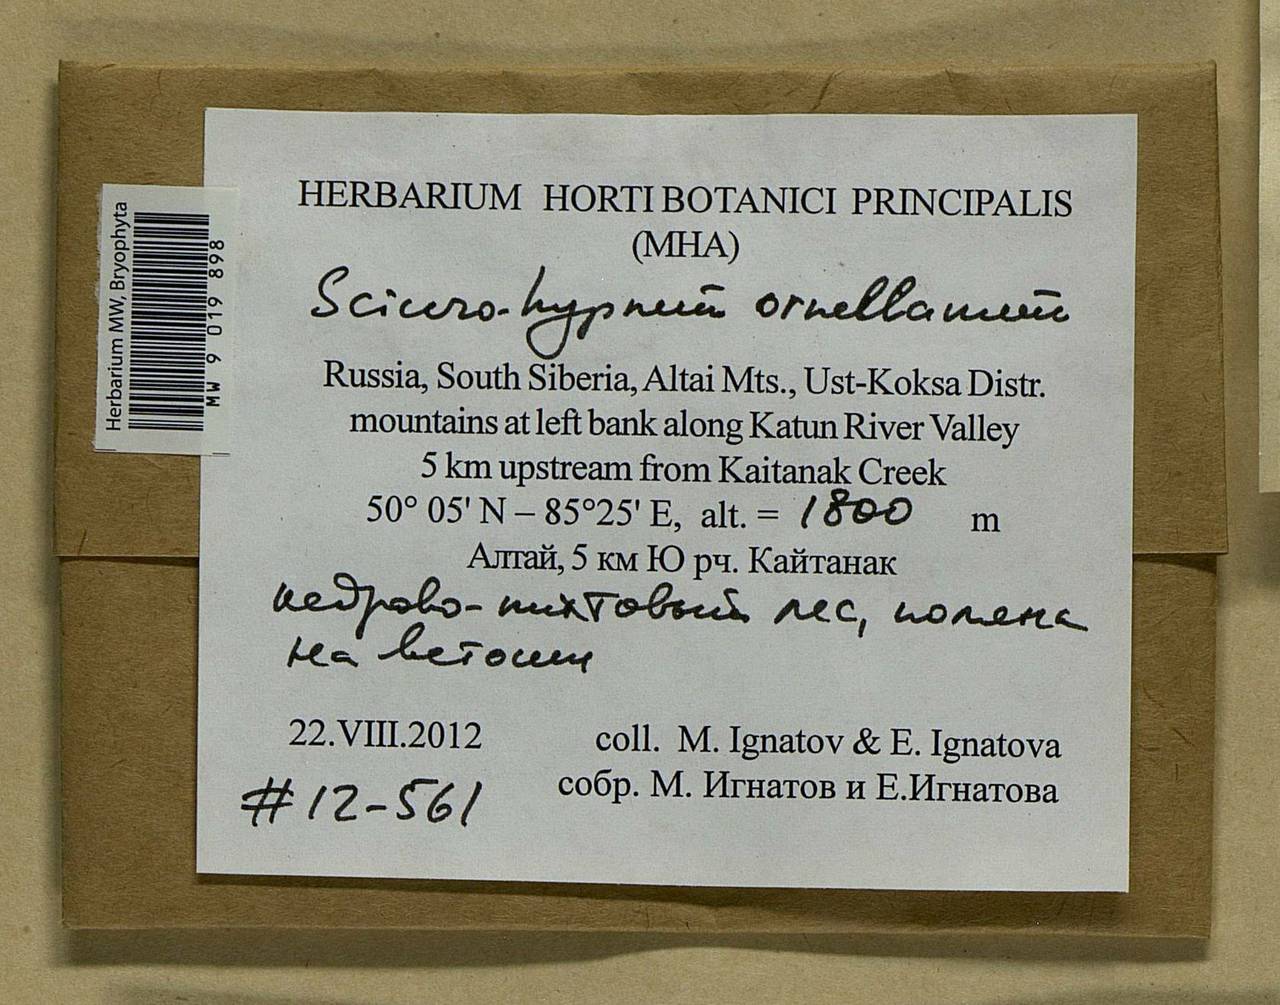 HERBARIUM HORTI BOTANICI PRINCIPALIS
(MHA)
Sciuro-hypnum ornellanum
Russia, South Siberia, Altai Mts., Ust-Koksa Distr.
mountains at left bank along Katun River Valley
5 km upstream from Kaitanak Creek
50° 05' N – 85°25' E, alt. = 1800 m
Алтай, 5 км Ю рч. Кайтанак
кедрово-пихтовый лес, поляна
на ветоши
22.VIII.2012
coll. M. Ignatov & E. Ignatova
собр. М. Игнатов и Е.Игнатова
#12-561
Herbarium MW, Bryophyta
MW 9 019 898